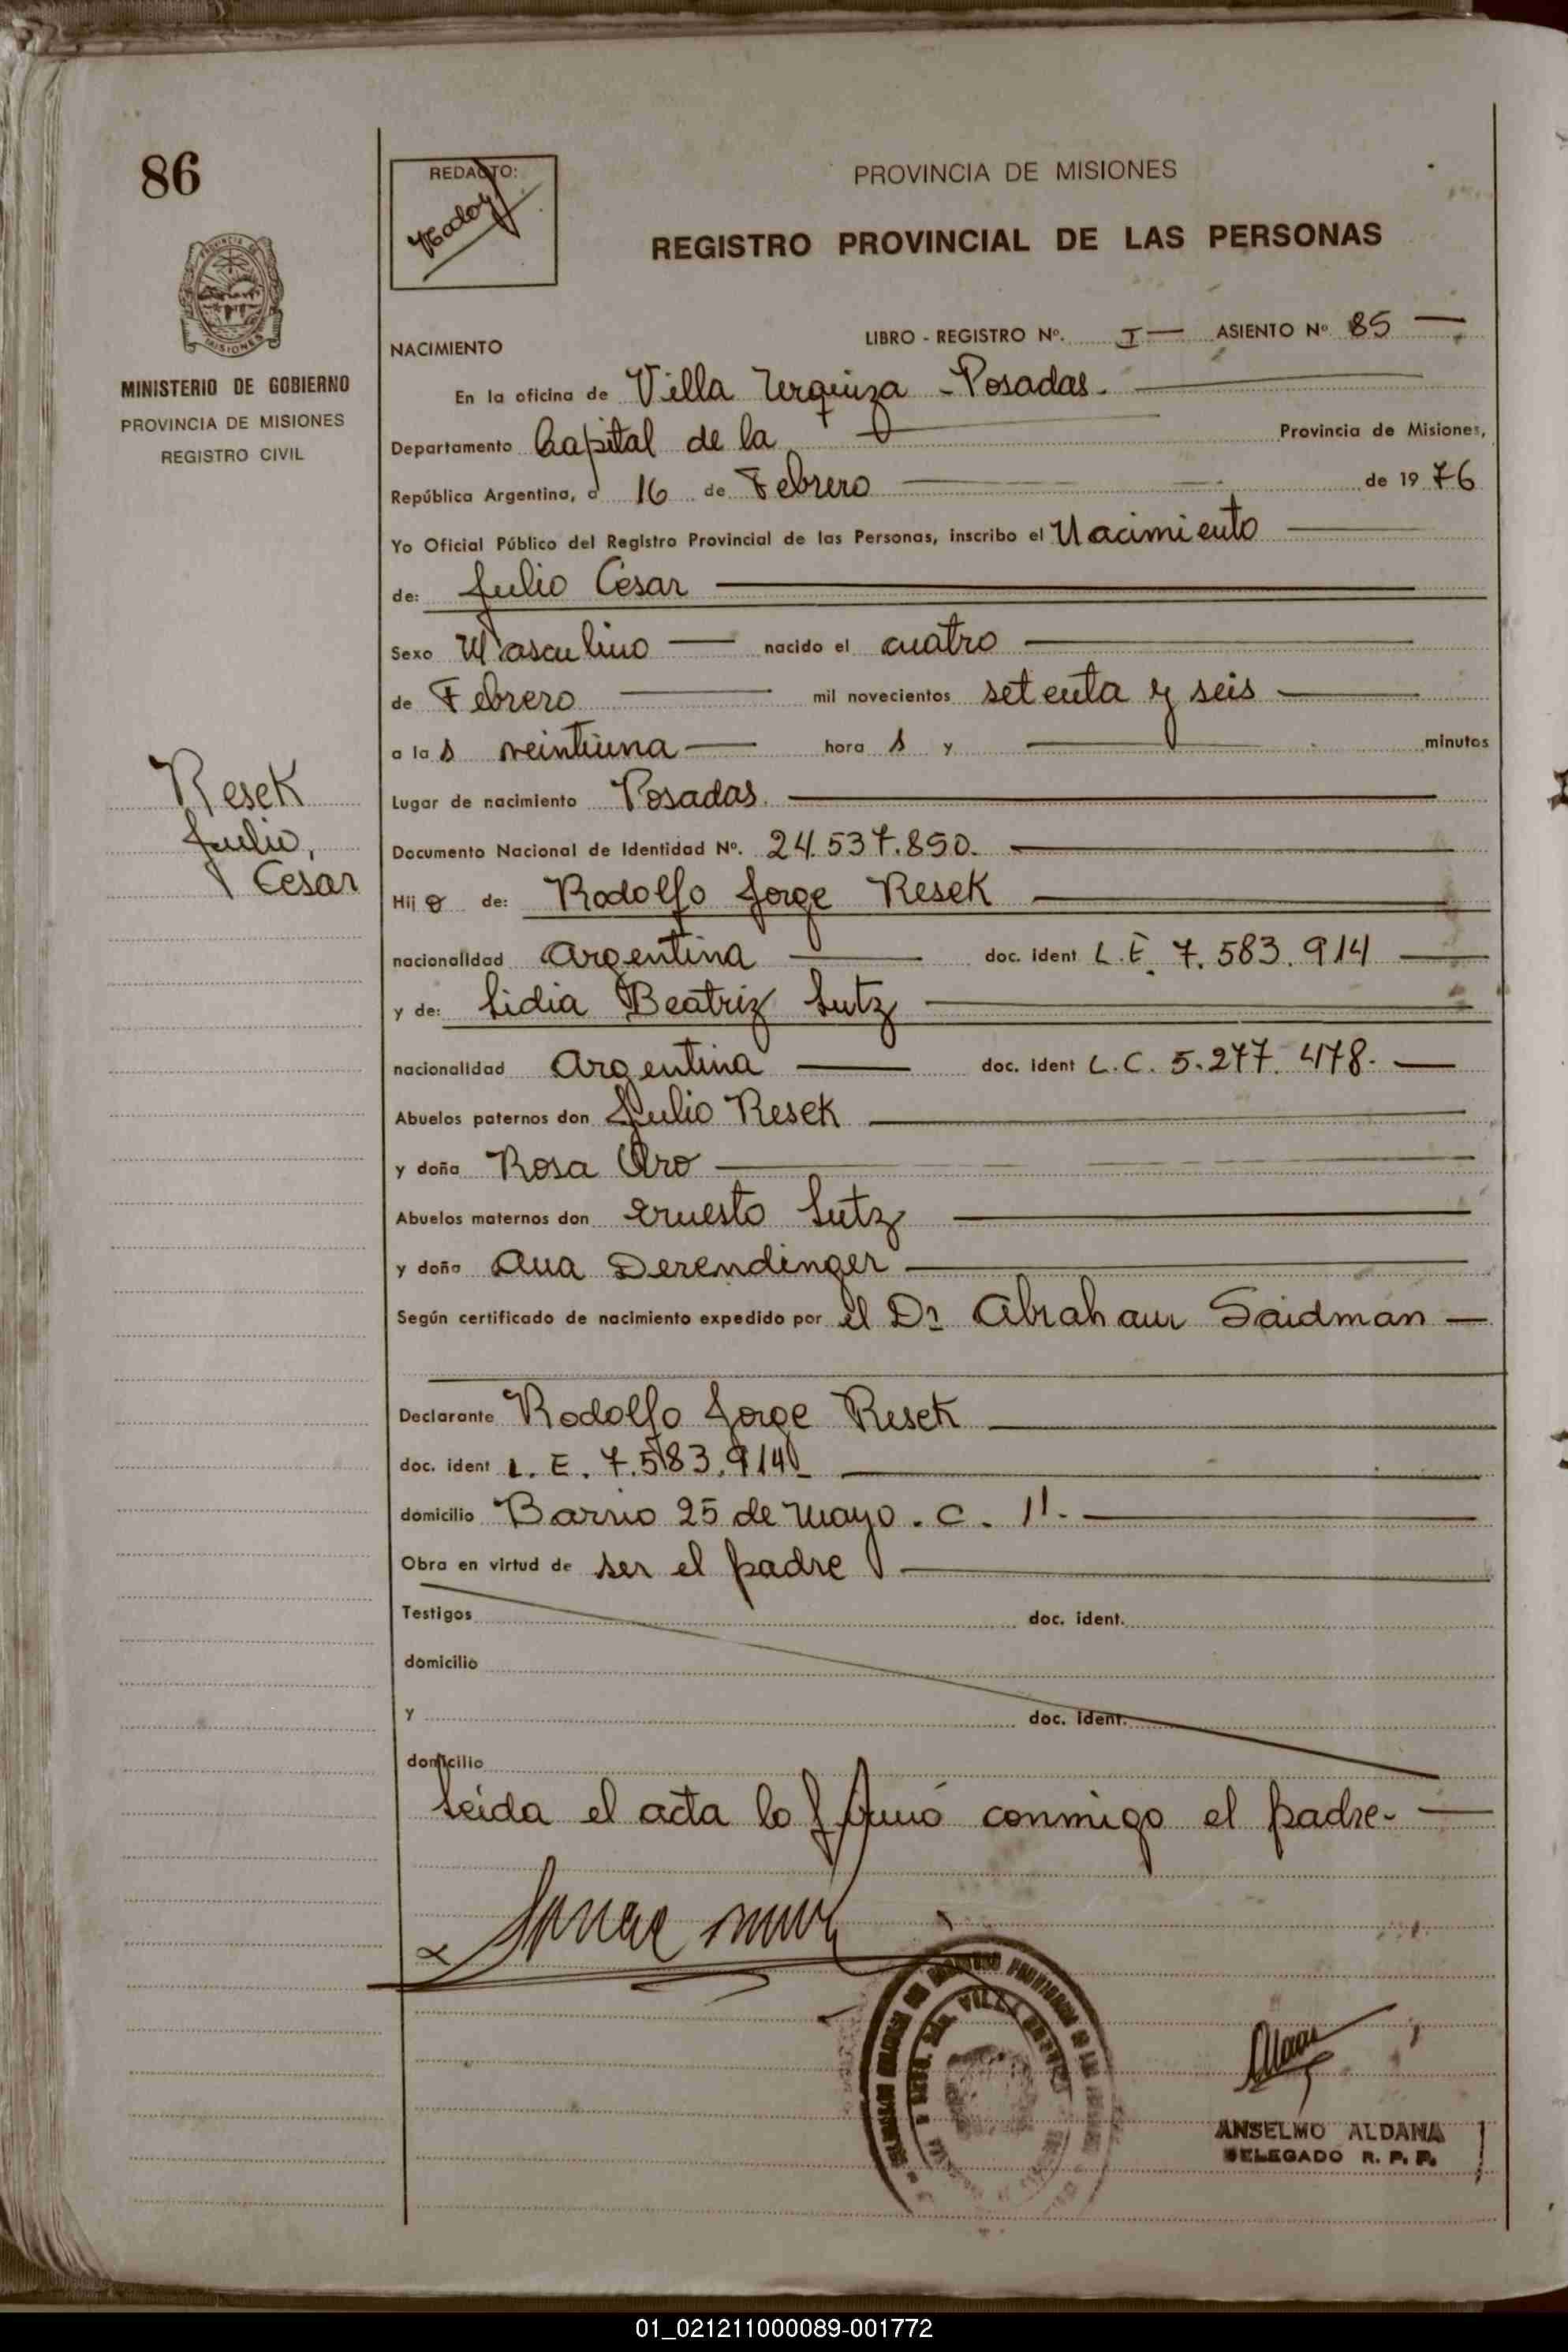 86
REDACTO:
PROVINCIA DE MISIONES
REGISTRO PROVINCIAL DE LAS PERSONAS
MISIONES
MINISTERIO DE GOBIERNO
PROVINCIA DE MISIONES
REGISTRO CIVIL
NACIMIENTO
LIBRO - REGISTRO Nº. I — ASIENTO Nº 85 —
En la oficina de Villa Urquiza - Posadas.
Departamento Capital de la Provincia de Misiones,
República Argentina, a 16 de Febrero de 1976
Yo Oficial Público del Registro Provincial de las Personas, inscribo el Nacimiento
de: Julio César
Sexo Masculino nacido el cuatro
de Febrero mil novecientos setenta y seis
a la s veintiuna hora s y — minutos
Lugar de nacimiento Posadas.
Documento Nacional de Identidad Nº. 24.537.850.
Hij o de: Rodolfo Jorge Resek
nacionalidad Argentina doc. ident L.E. 7.583.914
y de: Lidia Beatriz Lutz
nacionalidad Argentina doc. ident L.C. 5.277.478.
Abuelos paternos don Julio Resek
y doña Rosa Oro
Abuelos maternos don Ernesto Lutz
y doña Ana Derendinger
Según certificado de nacimiento expedido por el Dr Abraham Saidman
Declarante Rodolfo Jorge Resek
doc. ident L.E. 7.583.914
domicilio Barrio 25 de Mayo. C. 11.
Obra en virtud de ser el padre
Testigos doc. ident.
domicilio
y doc. ident.
domicilio
Leída el acta lo firmó conmigo el padre.
Resek
Julio,
Cesar
ANSELMO ALDANA
DELEGADO R. P. P.
01_021211000089-001772